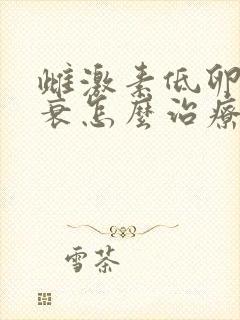 雌激素低卵
衰怎麼治療
雪茶